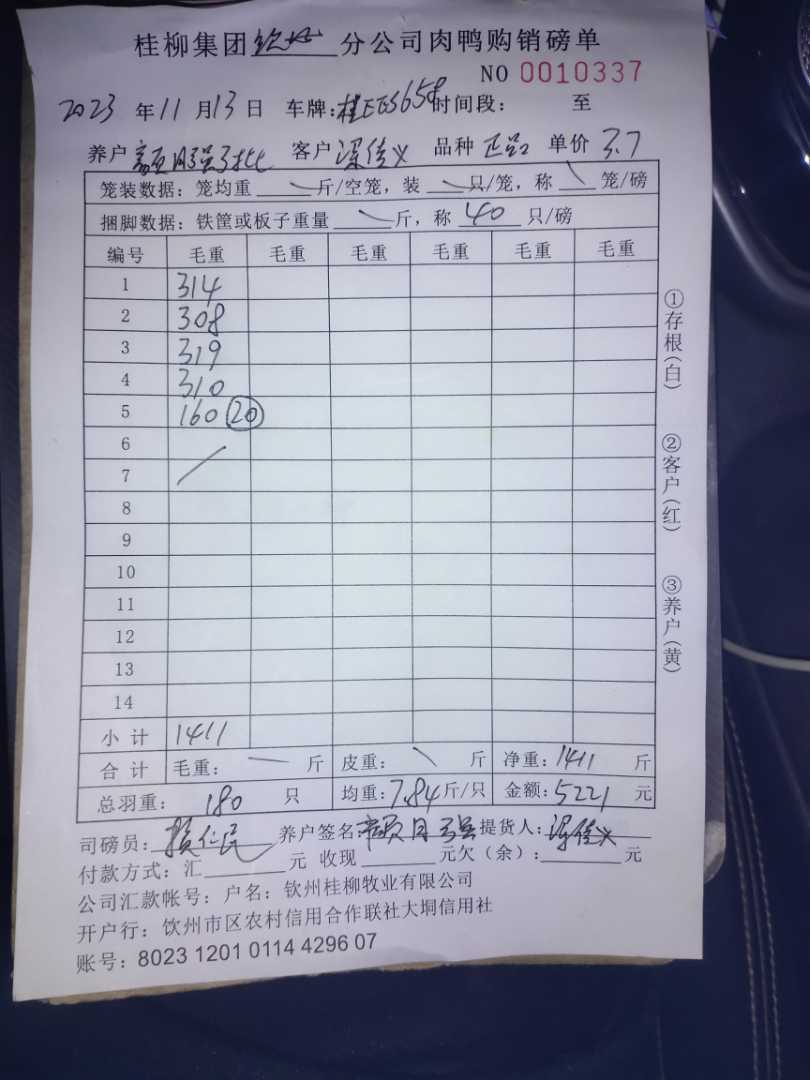 桂柳集团钦州分公司肉鸭购销磅单
NO 0010337
2023 年 11 月 13 日 车牌:桂EES658 时间段: 至
养户 客户 梁佳义 品种 正品 单价 3.7
笼装数据:笼均重 斤/空笼,装 只/笼,称 笼/磅
捆脚数据:铁筐或板子重量 斤,称 40 只/磅
编号 毛重 毛重 毛重 毛重 毛重 毛重
1 314
2 308
3 319
4 310
5 160 20
6
7
8
9
10
11
12
13
14
小 计 1411
合 计 毛重: 斤 皮重: 斤 净重:1411 斤
总羽重: 180 只 均重:7.84斤/只 金额:5221 元
司磅员: 养户签名: 提货人:梁佳义
付款方式:汇 元 收现 元欠(余): 元
公司汇款帐号:户名:钦州桂柳牧业有限公司
开户行:钦州市区农村信用合作联社大垌信用社
账号:8023 1201 0114 4296 07
①存根(白)
②客户(红)
③养户(黄)